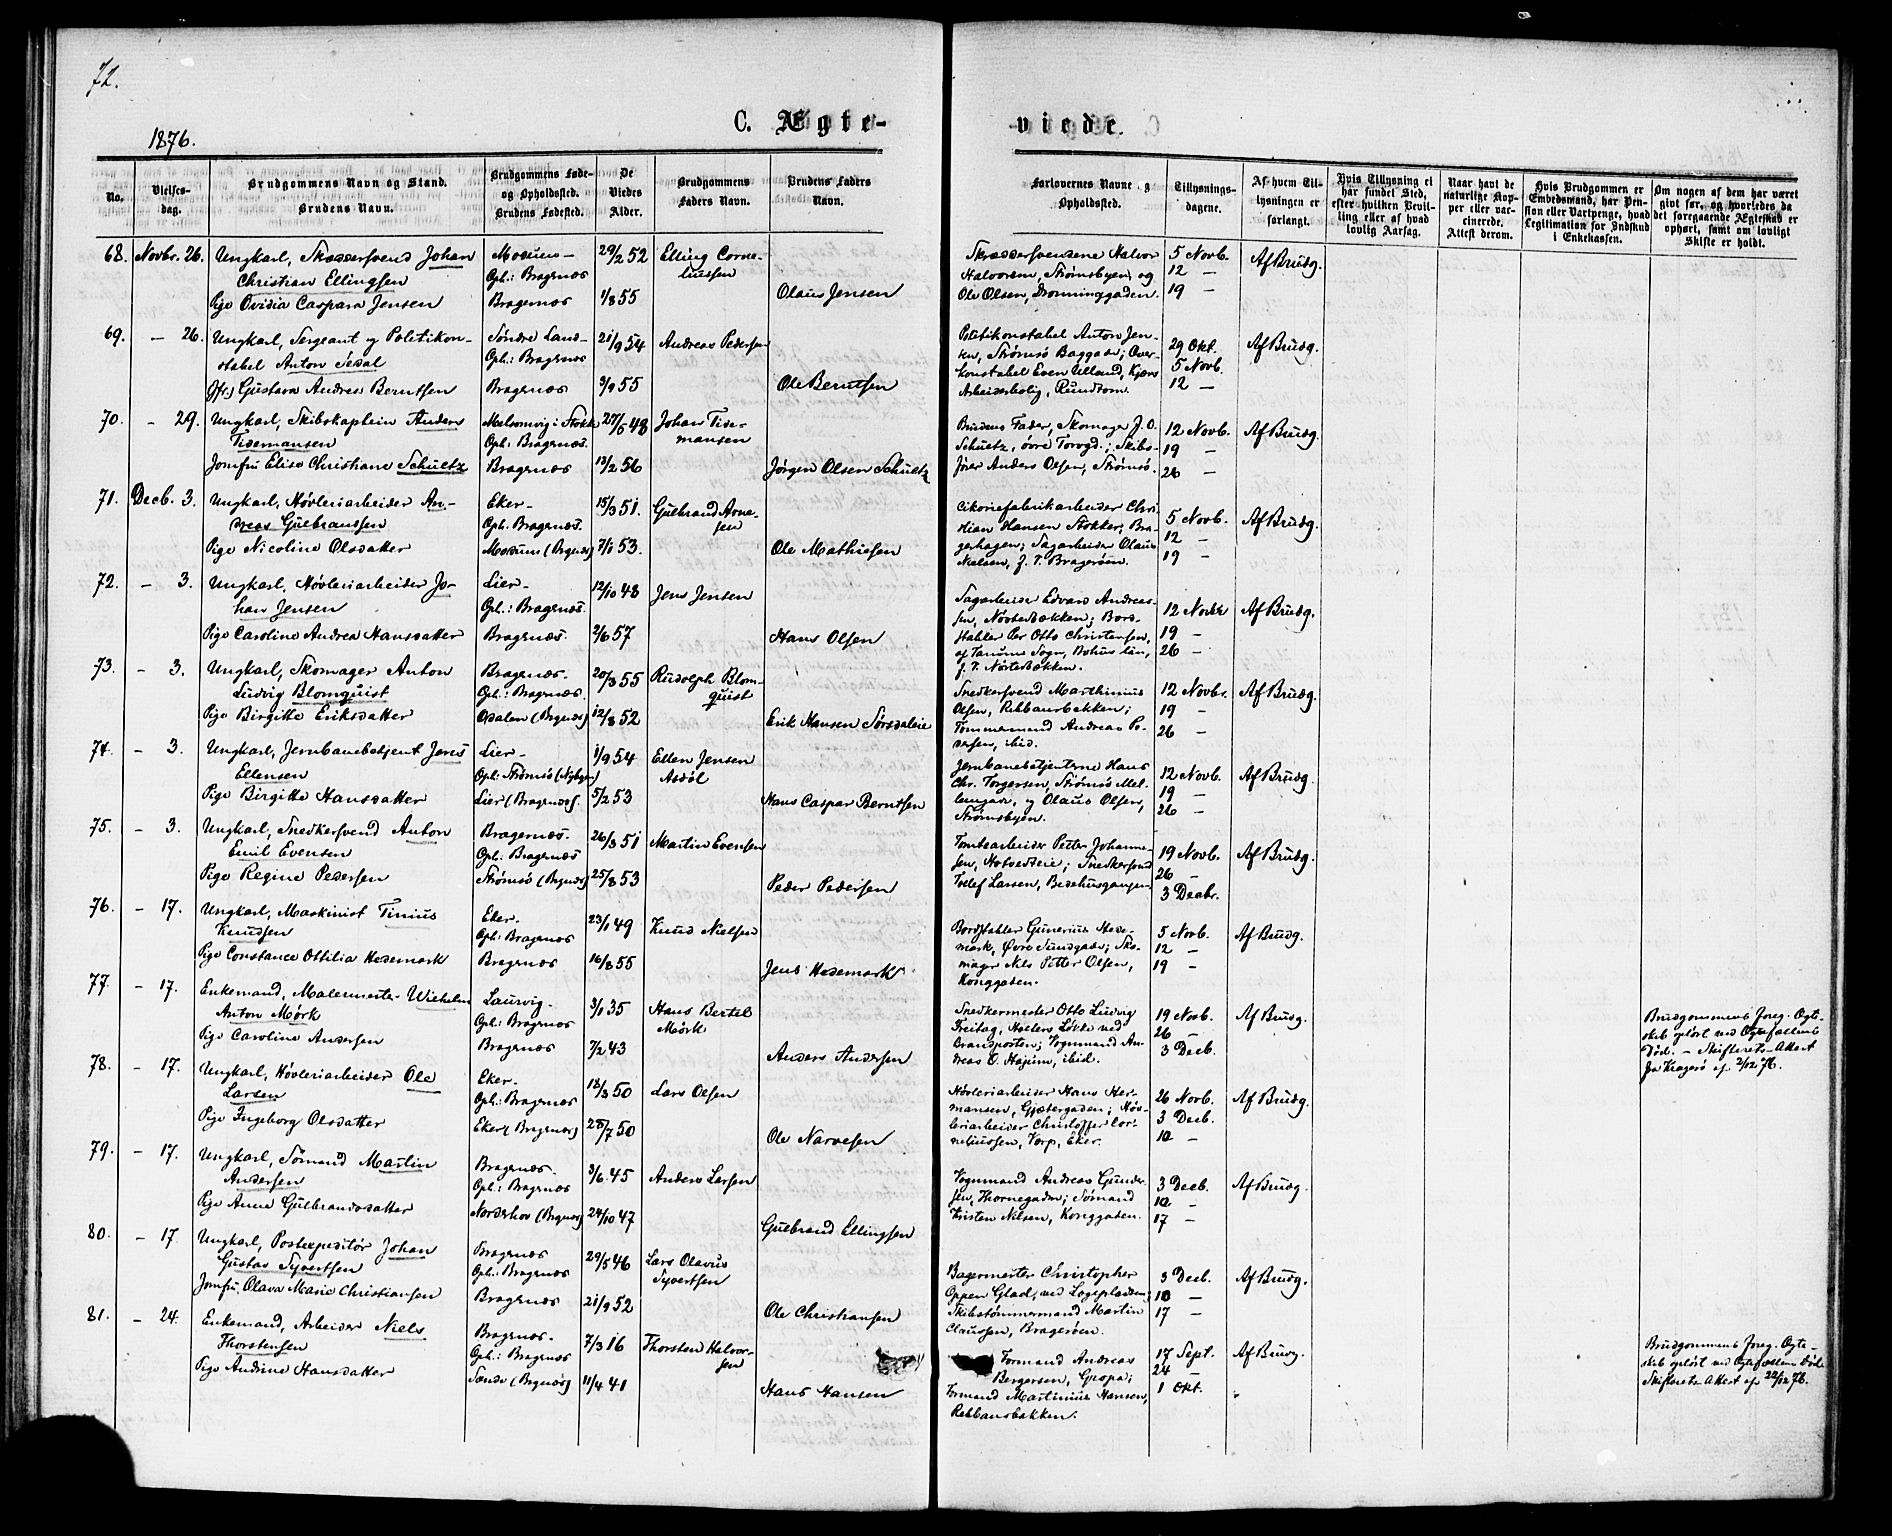 72.
1876.
C. Ægte-
viede.
No.
Vielses-
dag.
Brudgommens Navn og Stand.
Brudens Navn.
Brudgommens Føde-
og Opholdssted.
Brudens Fødested.
De
Viedes
Alder.
Brudgommens
Faders Navn.
Brudens Faders
Navn.
Forlovernes Navne og
Opholdssted.
Tillysnings-
dagene.
Af hvem Til-
lysningen er
forlangt.
Hvis Tillysning ei
har fundet Sted,
efter hvilken Bevil-
ling eller af hvad
lovlig Aarsag.
Naar havt de
naturlige Kop-
per eller vac-
cinerede.
Attest derom.
Hvis Brudgommen er
Embedsmand, har Pen-
sion eller Vartpenge, hvad
Legitimation for Indskud
i Enkekassen.
Om nogen af dem har været
givt før, og hvorledes da
det foregaaende Ægteskab er
ophørt, samt om lovligt
Skifte er holdt.
68. Novbr. 26. Ungkarl, Skossersvend Johan
Christian Ellingsen
Pige Ovidia Caspara Jensen
Modum-
Oph: Bragernæs
Bragernæs
29/2 52
1/8 55
Elling Corne-
liussen
Olaus Jensen
Halvorsen, Strømsbyen og
Ole Olsen, Dronninggaden.
5 Novb.
12 —
19 —
Af Brudg.
69. — 26. Ungkarl, Sergeant og Politikon-
stabel Anton Sedal
Gustava Andrea Berntsen
Søndre Land-
Oph: Bragernæs
Bragernæs
21/9 54
3/9 55
Andreas Pedersen
Ole Berntsen
Politikonstabel Anton Jen-
sen, Strømsø Baggade; Over-
konstabel Even Ulland, Kjærs
Arbeiderbolig, Rundtom.
29 Okt.
5 Novb.
12 —
Af Brudg.
70. — 29. Ungkarl, Skibskaptein Anders
Tidemansen
Jomfru Elise Christiane Schultz
Melsomvig i Stokke
Oph: Bragernæs.
Bragernæs
27/5 48
13/2 56
Johan Tide-
mansen
Jørgen Olsen Schultz
Brudens Fader, Skomager J. O.
Schultz, øvre Torvgd.; Skibs-
fører Anders Olsen, Strømsø.
12 Novb.
19 —
26 —
Af Brudg.
71. Decb. 3. Ungkarl, Høvleriarbeider An-
dreas Gulbrandsen
Pige Nicoline Olsdatter
Eker-
Oph: Bragernæs.
Modum (Bragernæs)
15/3 51.
7/1 53.
Gulbrand Arne-
sen
Ole Mathiesen
Cikoriefabrikarbeider Chri-
stian Hansen Stokker, Bra-
gerhagen; Sagarbeider Olaus
Nielsen, f. T. Bragerøen.
5 Novb.
12 —
19 —
Af Brudg.
72. — 3. Ungkarl, Høvleriarbeider Jo-
han Jensen
Pige Caroline Andrea Hansdatter
Lier-
Oph: Bragernæs.
Bragernæs.
12/10 48
2/6 57
Jens Jensen
Hans Olsen
Sagarbeider Edvard Andreas-
sen, Nordbækken; Bord-
stabler Per Otto Christensen,
af Tanums Sogn, Bohus län,
12 Novbr
19 —
26 —
Af Brudg.
73. — 3. Ungkarl, Skomager Anton
Ludvig Blomquist
Pige Birgitte Eriksdatter
Bragernæs.
Oph: Bragernæs.
20/3 55
12/8 52
Rudolph Blom-
quist
Erik Hansen Sørsdaleie
Snedkersvend Marthinius
Olsen, Rebbansbakken;
Tømmermand Andreas Pe-
dersen, ibid.
12 Novbr.
19 —
26 —
Af Brudg.
74. — 3. Ungkarl, Jernbanebetjent Jens
Ellensen
Pige Birgitte Hansdatter
Lier-
Oph: Strømsø (Nybyen)
Lier (Bragernæs).
1/9 54
5/2 53
Ellen Jensen
Asdøl
Hans Caspar Berntsen
Jernbanebetjenterne Hans
Chr. Torgersen, Strømsø Mel-
lemgade, og Olaus Olsen,
Strømsbyen.
12 Novb.
19 —
26 —
Af Brudg.
75. — 3. Ungkarl, Snedkersvend Anton
Emil Evensen
Pige Regine Pedersen
Bragernæs.
Oph: Bragernæs
Strømsø (Bragernæs)
26/3 51
25/8 53
Martin Evensen
Peder Pedersen
Tomtearbeider Petter Johanne-
sen, Hotvedteie; Snedkersvend
Tollef Larsen, Bedehusgangen
19 Novb.
26 —
3 Decbr.
Af Brudg.
76. — 17. Ungkarl, Maskinist Tinius
Knudsen
Pige Constance Ottilia Hedemark
Eker.
Oph: Bragernæs
Bragernæs
23/1 49
16/8 55
Knud Nielsen
Jens Hedemark
Bordstabler Gunerius Hede-
mark, Øvre Sundgade; Sko-
mager Nils Petter Olsen,
Konggaden.
5 Novb.
12 —
19 —
Af Brudg.
77. — 17. Enkemand, Malermester Wilhelm
Anton Mørk
Pige Caroline Andersen
Laurvig-
Oph: Bragernæs
Bragernæs
3/1 35
7/2 43
Hans Bertel
Mørk
Anders Andersen
Snedkermester Otto Ludvig
Freitag, Holters Løkke ved
Brandposten; Vognmand An-
dreas O. Hajum, ibid.
19 Novb.
26 —
3 Decb.
Af Brudg.
Brudgommens foreg. Ægte-
skab opløst ved Ægtefællens
Død. — Skifterets-Attest
fra Kragerø af 2/12 76.
78. — 17. Ungkarl, Høvleriarbeider Ole
Larsen
Pige Ingeborg Olsdatter
Eker.
Oph: Bragernæs
Eker (Bragernæs)
18/3 50
25/7 50
Lars Olsen
Ole Narvesen
Høvleriarbeider Hans Her-
mansen, Gjætergaden; Høv-
leriarbeider Christoffer Cor-
neliussen, Torp, Eker.
26 Novb.
3 Decb.
10 —
Af Brudg.
79. — 17. Ungkarl, Sømand Martin
Andersen
Pige Anne Gulbrandsdatter
Bragernæs.
Oph: Bragernæs
Norderhov (Bragernæs)
3/6 45
24/10 47
Anders Larsen
Gulbrand Ellingsen
Vognmand Andreas Gunder-
sen, Thornegaden; Sømand
Kristen Nilsen, Konggaden.
3 Decb.
10 —
17 —
Af Brudg.
80. — 17 Ungkarl, Postexpeditør Johan
Gustav Syvertsen
Jomfru Olava Marie Christiansen
Bragernæs
Oph: Bragernæs
Bragernæs
29/5 46
21/9 52
Lars Olavus
Syvertsen
Ole Christiansen
Bagermester Christopher
Oppen Glad, ved Logepladsen;
Skibstømmermand Martin
Claussen, Bragerøen.
3 Decb.
10 —
17 —
Af Brudg.
81. — 24. Enkemand, Arbeider Niels
Thorstensen
Pige Andine Hansdatter
Bragernæs.
Oph: Bragernæs
Sande (Bragernæs)
7/3 16
11/4 41
Thorsten Halvor-
sen
Hans Hansen
Formand Andreas
Bergersen, Gropa;
Formand Martinius Hansen,
Rebbansbakken.
17 Sept.
24 —
1 Okt.
Af Brudg.
Brudgommens foreg. Ægte-
skab opløst ved Ægtefællens Død.
Skifterets-Attest af 22/12 76.